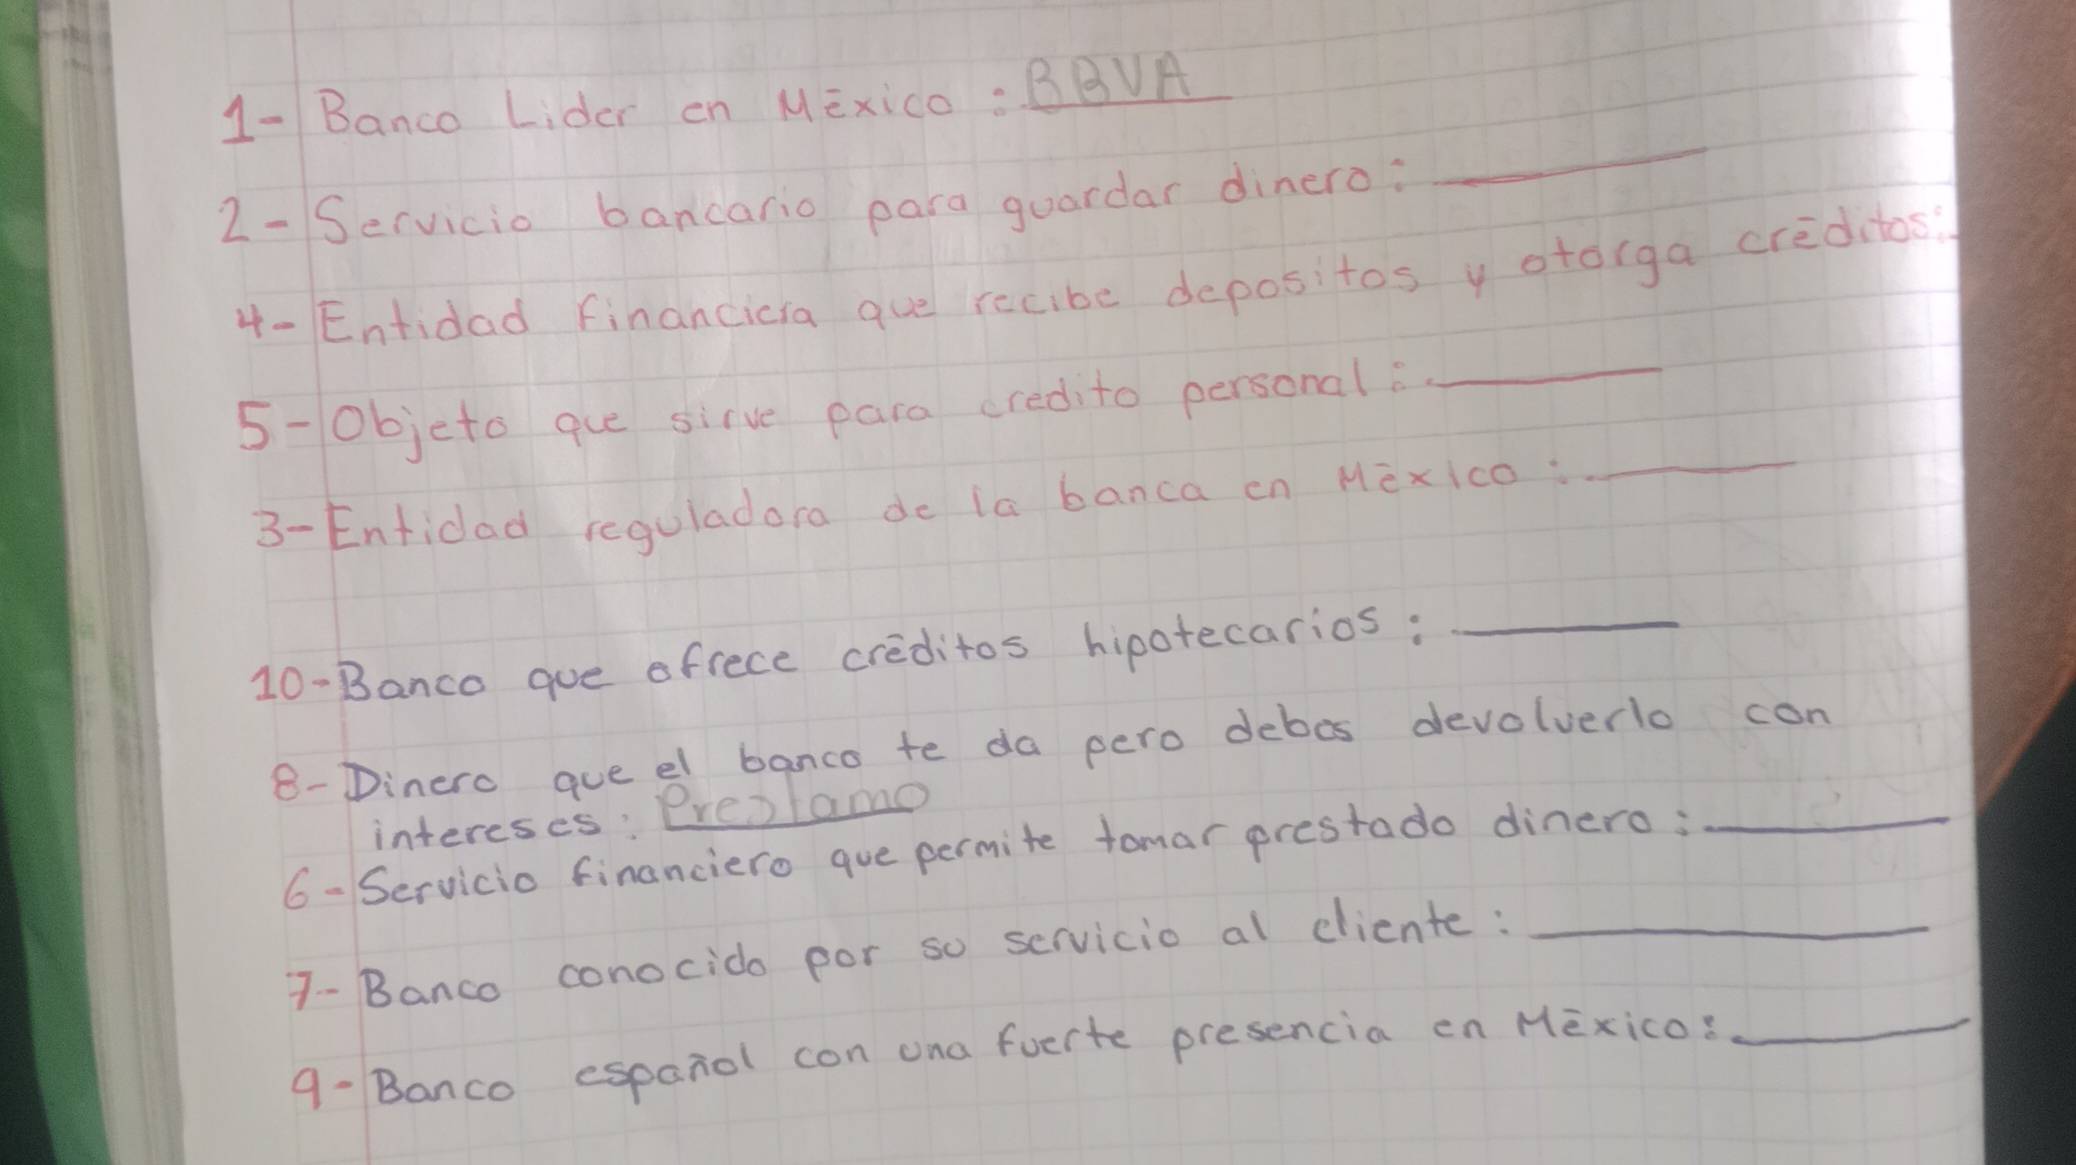 1- Banco Lider en México: BBVA
2- Servicio bancario para guardar dinero:
4- Entidad financiera que recibe depositos y otorga créditos:
5- Objeto que sirve para credito personal:
3- Entidad reguladora de la banca en México:
10- Banco que ofrece créditos hipotecarios:
8- Dinero que el banco te da pero debes devolverlo con
intereses: Prestamo
6- Servicio financiero que permite tomar prestado dinero:
7- Banco conocido por su servicio al cliente:
9- Banco español con una fuerte presencia en México: